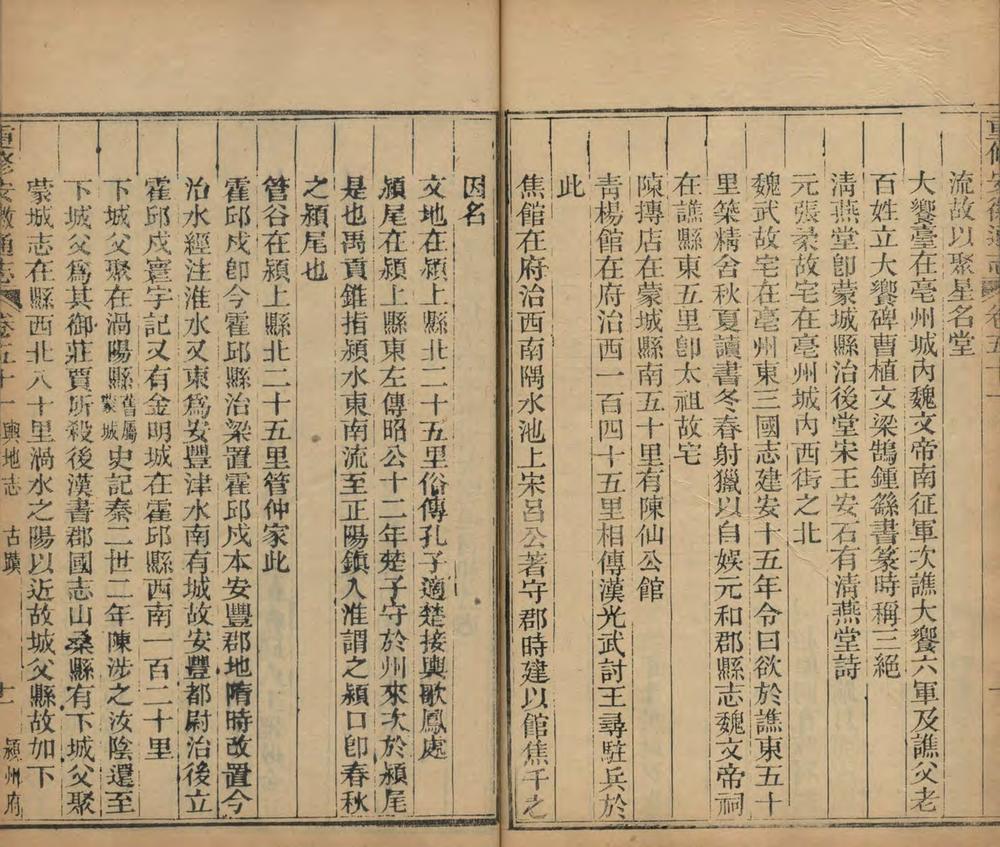 流故以聚星名堂
大饗臺在亳州城內魏文帝南征軍次譙大饗六軍及譙父老
百姓立大饗碑曹植文梁鵠鍾繇書篆時稱三絕
清燕堂卽蒙城縣治後堂宋王安石有清燕堂詩
元張柔故宅在亳州城內西街之北
魏武故宅在亳州東三國志建安十五年令曰欲於譙東五十
里築精舍秋夏讀書冬春射獵以自娛元和郡縣志魏文帝祠
在譙縣東五里卽太祖故宅
陳摶店在蒙城縣南五十里有陳仙公館
青楊館在府治西一百四十五里相傳漢光武討王尋駐兵於
此
焦館在府治西南隅水池上宋呂公著守郡時建以館焦千之
因名
交地在潁上縣北二十五里俗傳孔子適楚接輿歌鳳處
潁尾在潁上縣東左傳昭公十二年楚子守於州來次於潁尾
是也禹貢錐指潁水東南流至正陽鎮入淮謂之潁口卽春秋
之潁尾也
管谷在潁上縣北二十五里管仲家此
霍邱戍卽今霍邱縣治梁置霍邱戍本安豐郡地隋時改置今
治水經注淮水又東爲安豐津水南有城故安豐都尉治後立
霍邱戍寰宇記又有金明城在霍邱縣西南一百二十里
下城父聚在渦陽縣舊屬蒙城史記秦二世二年陳涉之汝陰還至
下城父爲其御莊賈所殺後漢書郡國志山桑縣有下城父聚
蒙城志在縣西北八十里渦水之陽以近故城父縣故如下
重修安徽通志 卷五十一 輿地志 古蹟 十一 潁州府